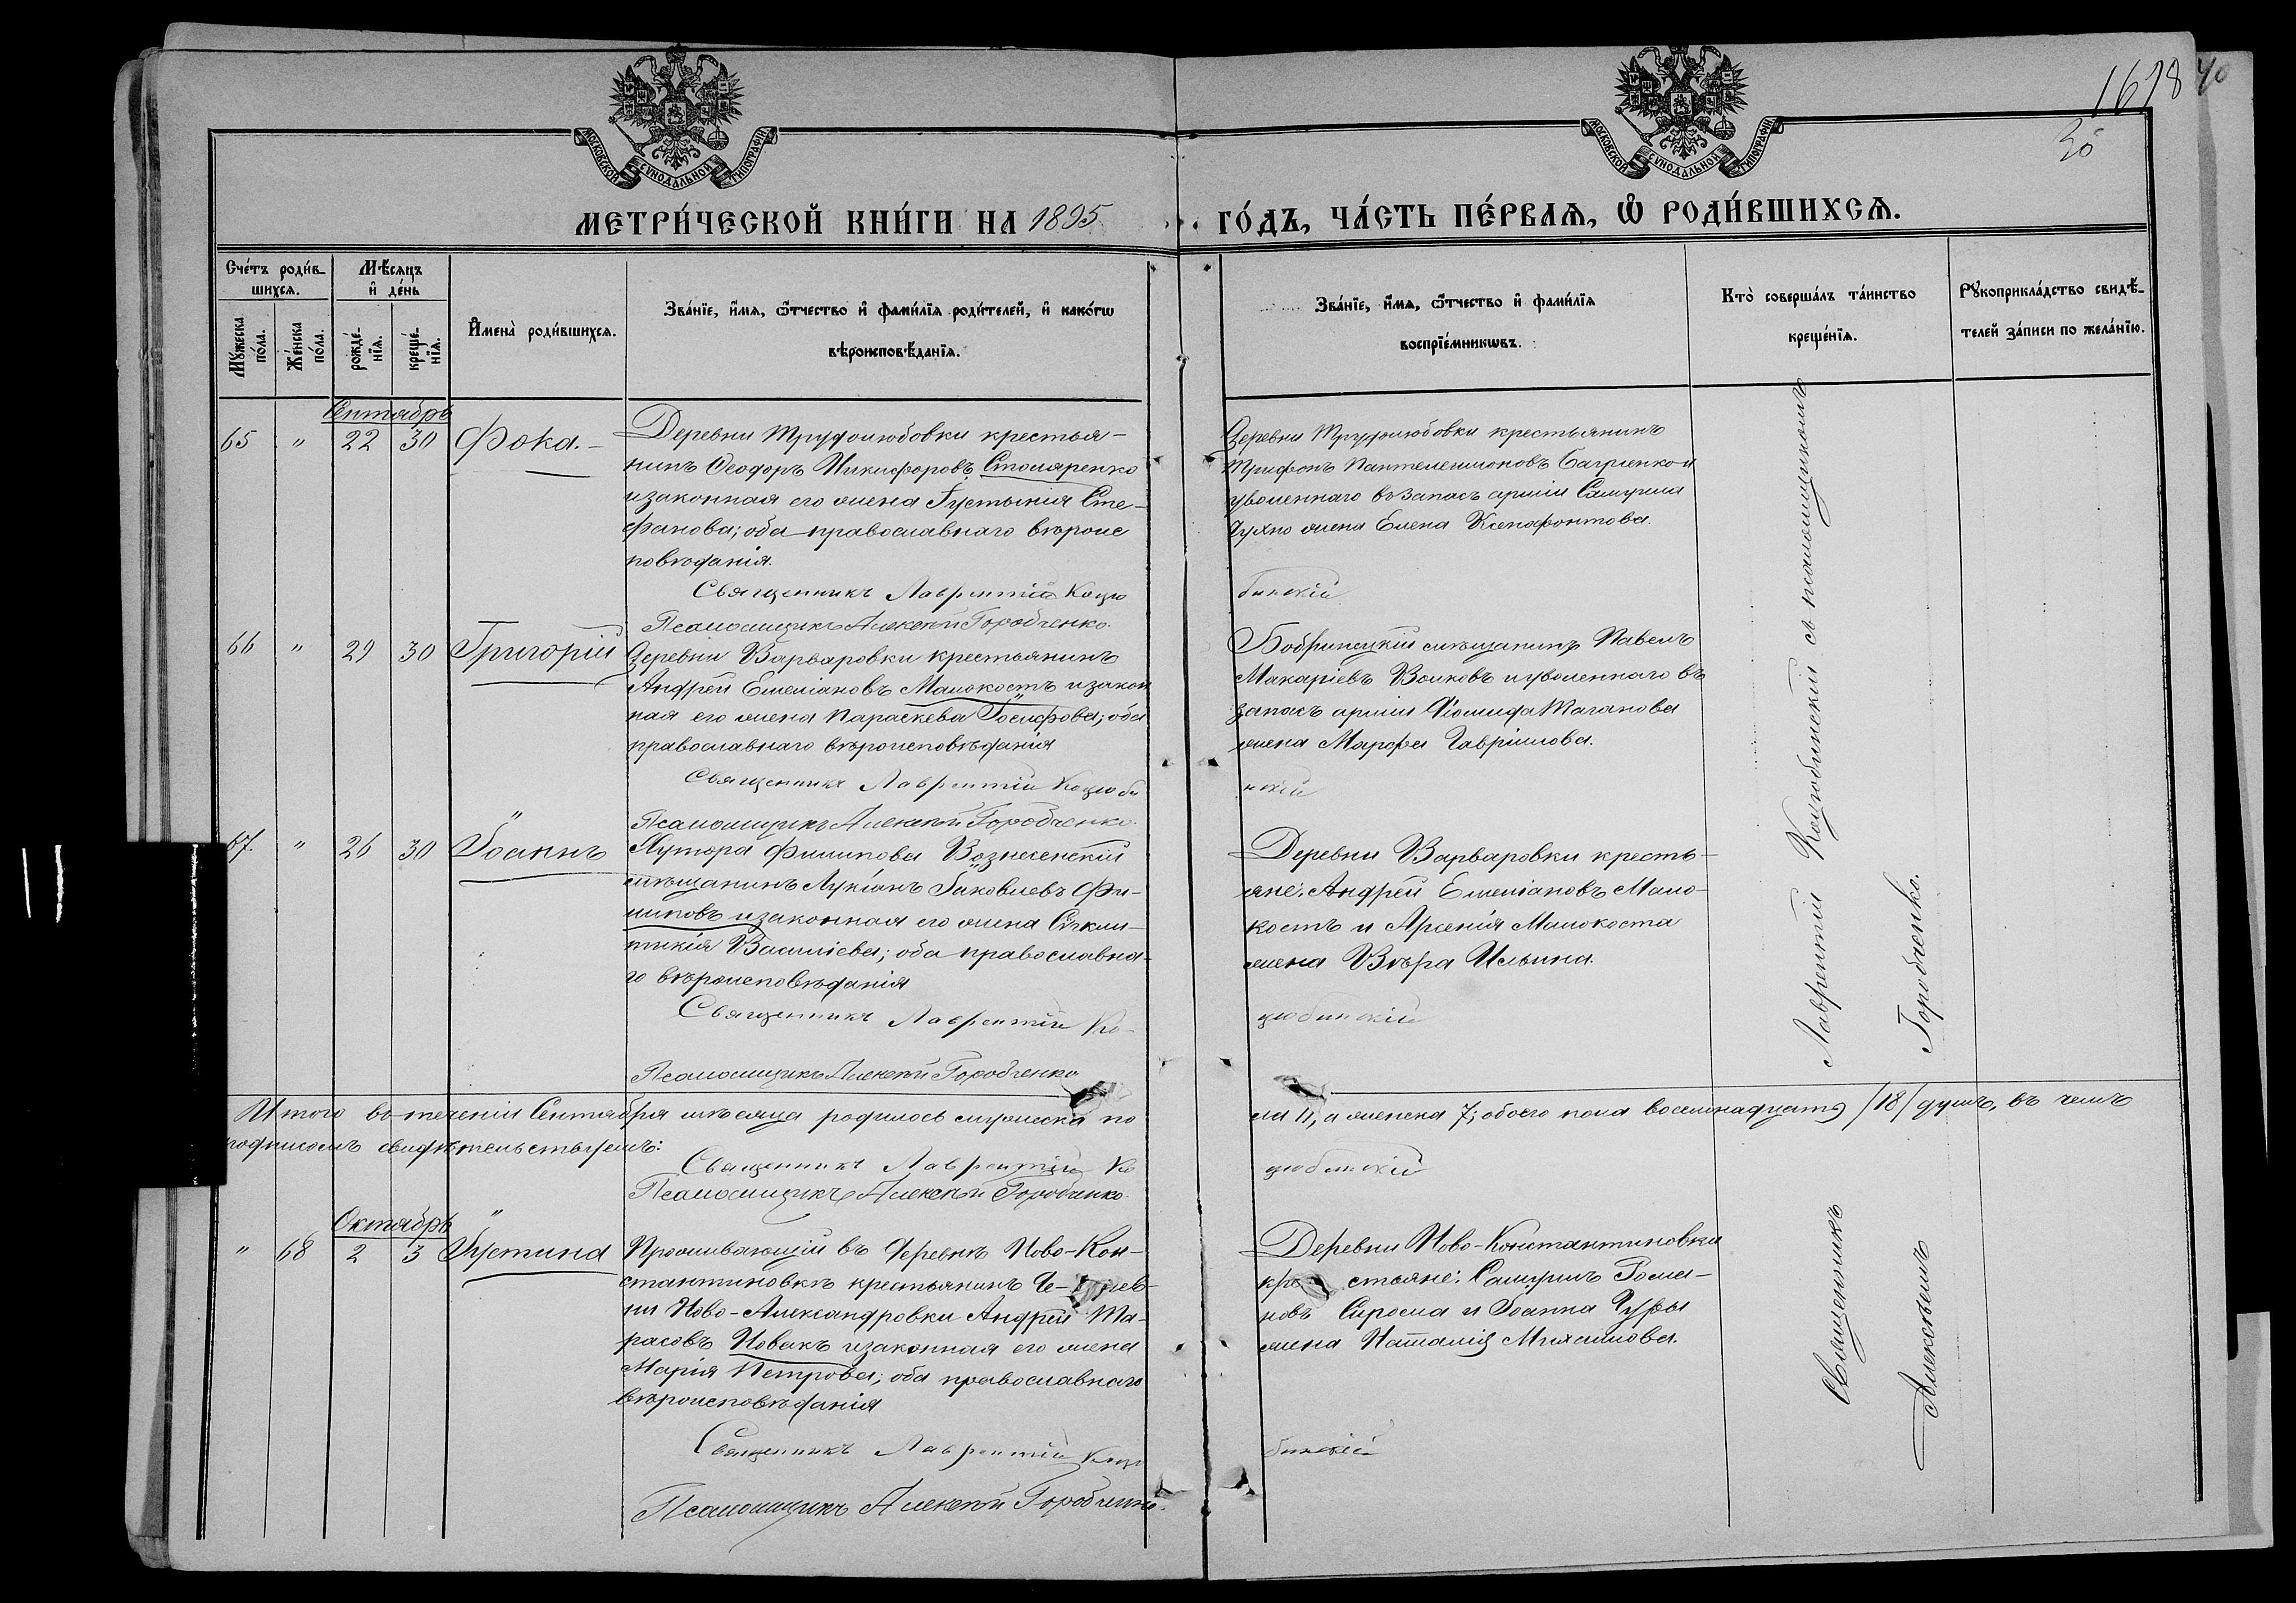 1618 40
30
МОСКОВСКОЙ СѴНОДАЛЬНОЙ ТИПОГРАФІИ
МОСКОВСКОЙ СѴНОДАЛЬНОЙ ТИПОГРАФІИ
МЕТРИ́ЧЕСКОЙ КНИ́ГИ НА 1895 ГО́ДЪ, ЧА́СТЬ ПЕ́РВАѦ, Ѽ РОДИ́ВШИХСѦ.
Сче́тъ роди́в-
шихсѧ.
Мꙋ́жеска
по́ла.
Же́нска
по́ла.
Мѣ́сѧцъ
и҆ де́нь
рожде́-
нїѧ.
креще́-
нїѧ.
И҆мена̀ роди́вшихсѧ.
Зва́нїе, и҆́мѧ, ѻ҆́тчество и҆ фами́лїѧ роди́телей, и҆ како́гѡ
вѣроисповѣ́данїѧ.
Зва́нїе, и҆́мѧ, ѻ҆́тчество и҆ фами́лїѧ
воспрїе́мникѡвъ.
Кто̀ соверша́лъ та́инство
креще́нїѧ.
Рꙋкоприкла́дство свидѣ́-
телей за́писи по жела́нїю.
Сентябрь
65 " 22 30 Фока.
Деревни Трудолюбовки крестья-
нинъ Ѳеодоръ Никифоровъ Столяренко
и законная его жена Іустинія Сте-
фанова; оба православнаго вѣроис
повѣданія.
Священникъ Лаврентій Коцю
Псаломщикъ Алексѣй Горобченко.
Деревни Трудолюбовки крестьянинъ
Трифонъ Пантелеимоновъ и
уволеннаго въ запасъ арміи Самуила
Чухно жена Елена Ксенофонтова.
бинскій
66 " 29 30 Григорій
Деревни Варваровки крестьянинъ
Андрей Емеліановъ Малокостъ и закон
ная его жена Параскева Іосифова; оба
православнаго вѣроисповѣданія
Священникъ Лаврентій Коцюби
Псаломщикъ Алексѣй Горобченко.
Бобринецкій мѣщанинъ Павелъ
Макаріевъ Волковъ и уволеннаго въ
запасъ арміи Діомида Таганова
жена Марфа Гавріилова.
нскій
67. " 26 30 Іоаннъ
Хутора Филипова Вознесенскій
мѣщанинъ Лукіанъ Іаковлевъ Фи-
липовъ и законная его жена Сѵнкли-
тикія Василіева; оба православна-
го вѣроисповѣданія
Священникъ Лаврентій Ко-
Псаломщикъ Алексѣй Горобченко
Деревни Варваровки кресть-
яне: Андрей Емеліановъ Мало-
костъ и Арсенія Малокоста
жена Вѣра Ильина.
цюбинскій
Итого въ теченіи Сентября мѣсяца родилось мужеска по
ла 11, а женска 7; обоего пола восемнадцать /18/ душъ, въ чемъ
подписомъ свидѣтельствуемъ:
Священникъ Лаврентій Ко
цюбинскій
Псаломщикъ Алексѣй Горобченко.
Октябрь
" 68 2 3 Іустина
Проживающій въ деревнѣ Ново-Кон-
стантиновкѣ крестьянинъ де-рев-
ни Ново-Александровки Андрей Та-
расовъ Новакъ и законная его жена
Марія Петрова; оба православнаго
вѣроисповѣданія
Священникъ Лаврентій Коцю
Псаломщикъ Алексѣй Горобченко.
Деревни Ново-Константиновки
кре стьяне: Самуилъ Рома-
новъ Сирома и Іоанна Чуды
жена Наталія Михаилова.
бинскій
Священникъ Лаврентій Коцюбинскій съ псаломщикомъ
Алексѣемъ Горобченко.